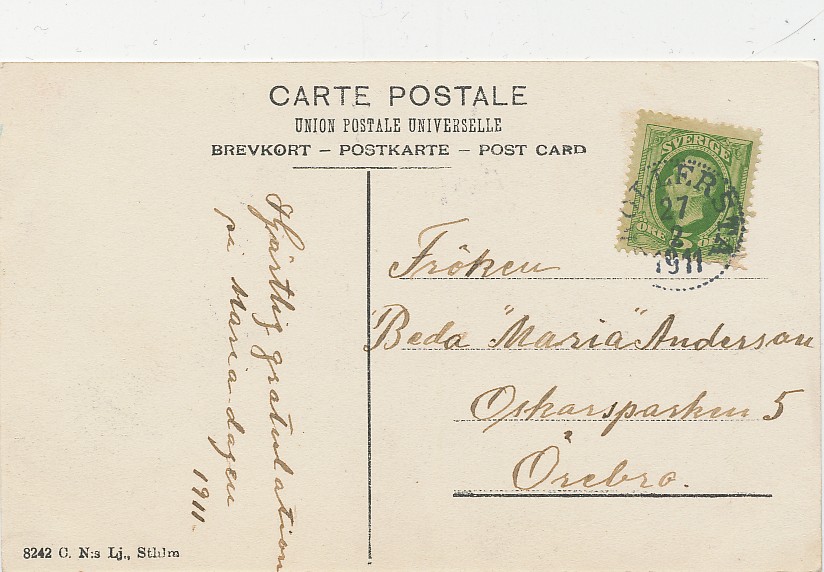 CARTE POSTALE
UNION POSTALE UNIVERSELLE
BREVKORT – POSTKARTE – POST CARD
SVERIGE
27
2
1911
5
ÖRE
Hjärtlig gratulation
på Maria-dagen
1911.
Fröken
Beda "Maria" Anderson
Oskarsparken 5
Örebro.
8242 C. N:s Lj., Sthlm